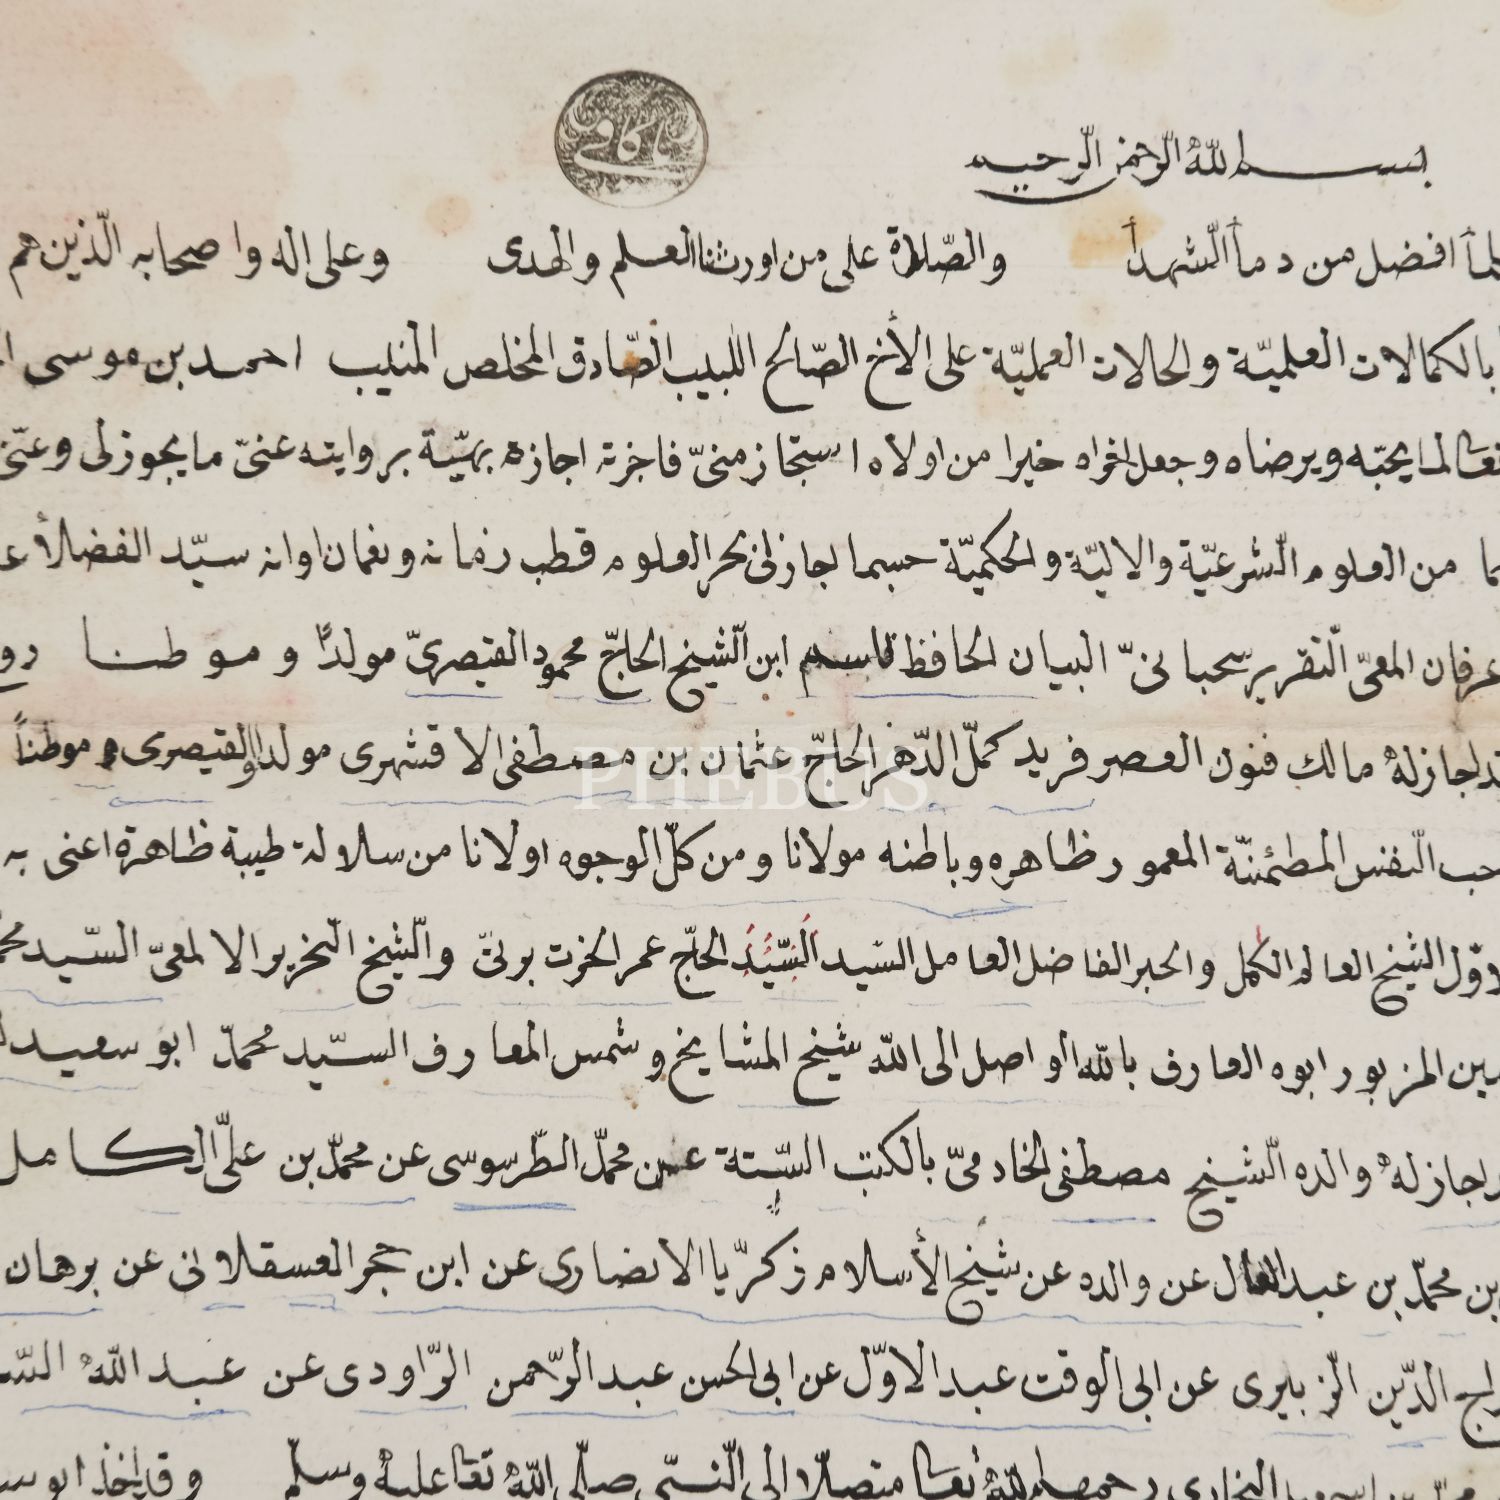 يا كافي
بسم الله الرحمن الرحيم
افضل من دمأ الشهدأ والصّلاة على من اورثنا العلم والهدى وعلى اله واصحابه الّذين هم
بالكمالات العلميّة والحالات العمليّة على الأخ الصّالح اللبيب الصّادق المخلص المنيب احمد بن موسى
لما يحبّه ويرضاه وجعل اخراه خيرا من اولاه استجاز منىّ فاجزته اجازة بهيّة بروايته عنىّ ما يجوز لى وعنّى
من العلوم الشّرعيّة والاليّة والحكميّة حسبما اجازنى بحر العلوم قطب زمانه ونعمان اوانه سيّد الفضلأ
عرفان المعىّ التّقرير سحبانىّ البيان الحافظ قاسم ابن الشّيخ الحاجّ محمود القيصرىّ مولدًا وموطنا
اجاز له مالك فنون العصر فريد كمّل الدّهر الحاجّ عثمان بن مصطفى الاقشهرى مولدا والقيصرى موطناً
النّفس المطمئنّة المعمور ظاهره وباطنه مولانا ومن كلّ الوجوه اولانا من سلالة طيبة ظاهرة اعنى به
الشّيخ العالم الكمل والحبر الفاضل العامل السّيد السّيّد الحاجّ عمر الخرت برتىّ والشّيخ النّحرير الالمعىّ السّيد
المزبور ابوه العارف بالله الواصل الى الله شيخ المشايخ وشمس المعارف السّيد محمّد ابو سعيد
اجاز له والده الشّيخ مصطفى الخادمىّ بالكتب السّتة عن محمّد الطّرسوسى عن محمّد بن علىّ الكامل
بن محمّد بن عبد العال عن والده عن شيخ الأسلام زكريّا الانصارى عن ابن حجر العسقلانى عن برهان
الدّين الزّبيرى عن ابى الوقت عبد الاوّل عن ابى الحسن عبد الرّحمن الرّاودى عن عبد الله
البخارى رحمهم الله تعا متصلا الى النّبى صلّى الله تعا عليه وسلّم وقد اخذ
PHEBUS